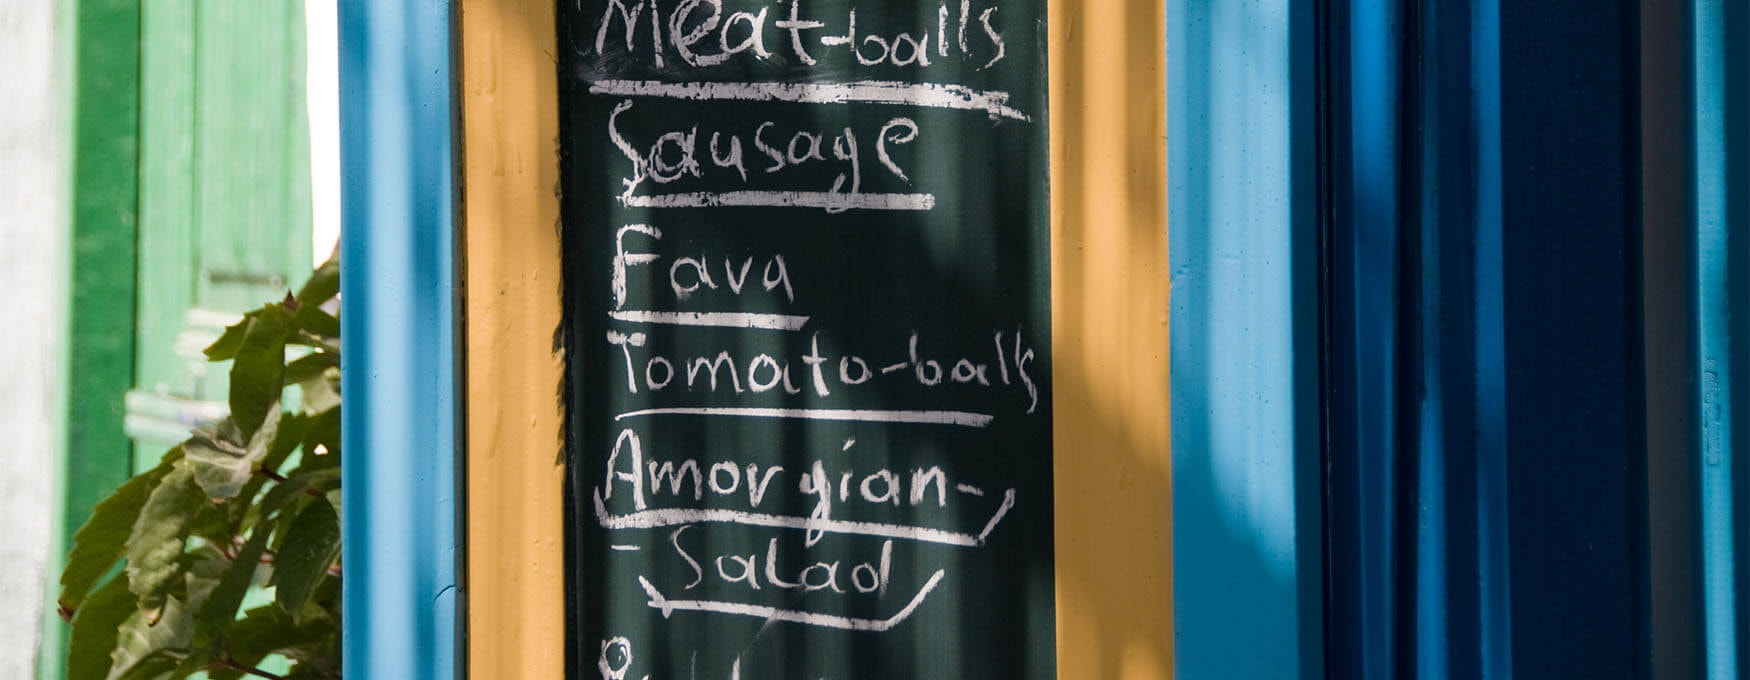 Meat-balls
Sausage
Fava
Tomato-balls
Amorgian-
-Salad